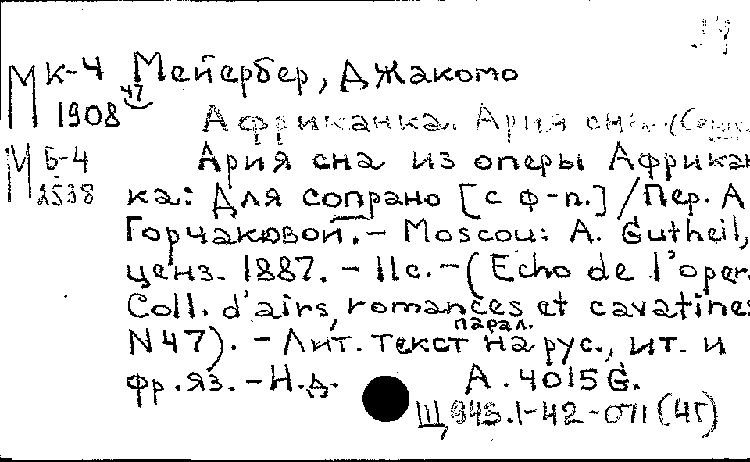 М К-4 Мейербер, Джакомо
1908 47
Африканка. Ария сна.
М Б-4 Ария сна из оперы Африкан
2538 ка: Для сопрано [с ф-п.] / Пер. А
Горчаковой. – Moscou: A. Gutheil,
ценз. 1887. – 11с. – (Echo de l'opera
Coll. d'airs, romances et cavatines
N47). – Лит. текст парал. на рус., ит. и
фр. яз. – Н.д. A. 4015 G.
Щ 945.1-42-071 (4Г)